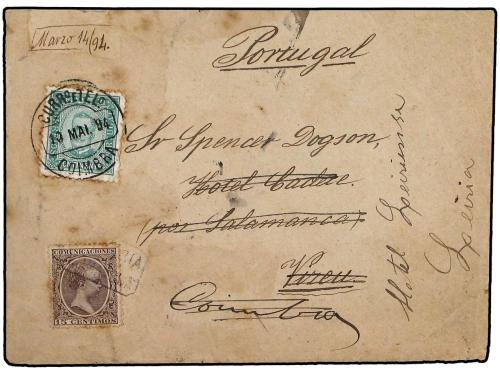 Marzo 14/94.
Portugal
CORRO E TELO
3 MAI. 94
COIMBRA
Sr Spencer Dogson,
Hotel Cadac
(por Salamanca)
Vizeu
Coimbra
Hotel Leiriense
Leiria
COMUNICACIONES
15 CENTIMOS